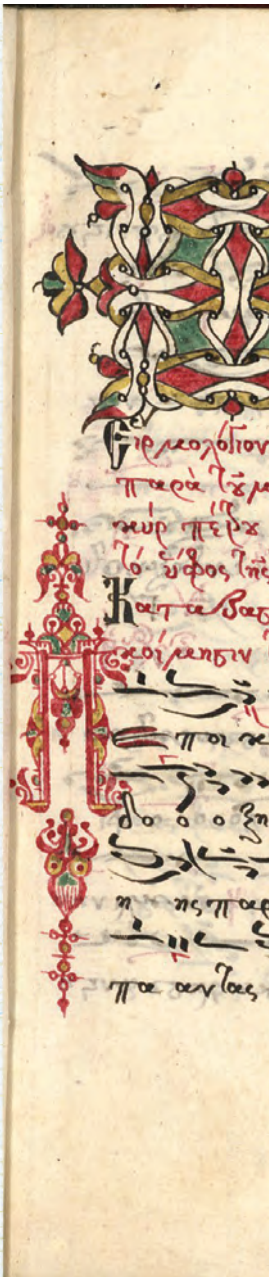 Ειρμολόγιον
παρὰ τοῦ
κὺρ πέτρου
τὸ ὕφος τῆς
Καταβασ
κοίμησιν
ποι κ
δο ο ο ξη
η ης παρ
πα αντας